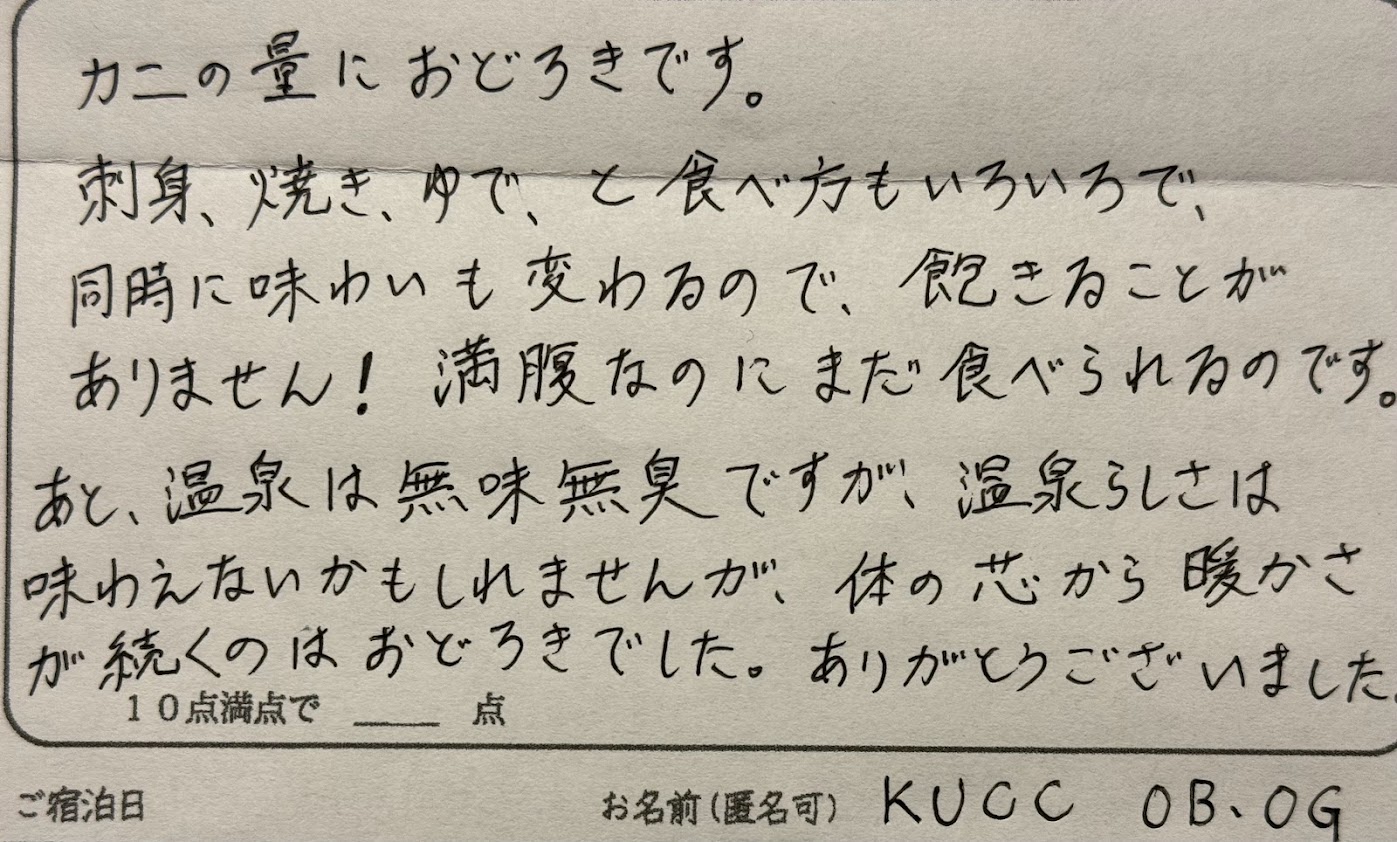 カニの量におどろきです。
刺身、焼き、ゆで、と食べ方もいろいろで、
同時に味わいも変わるので、飽きることが
ありません! 満腹なのにまだ食べられるのです。
あと、温泉は無味無臭ですが、温泉らしさは
味わえないかもしれませんが、体の芯から暖かさ
が続くのはおどろきでした。ありがとうございました。
10点満点で ____ 点
ご宿泊日
お名前(匿名可) KUCC OB、OG